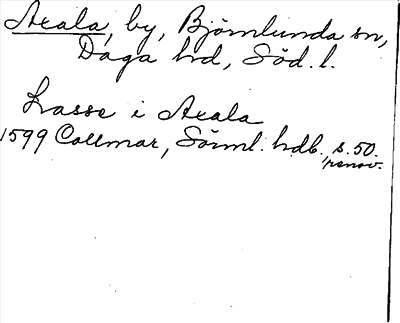 Axala, by, Björnlunda sn,
Daga hd, Söd. l.
Lasse i Axala
1599 Collmar, Sörml. hdb. s. 50.
renov.